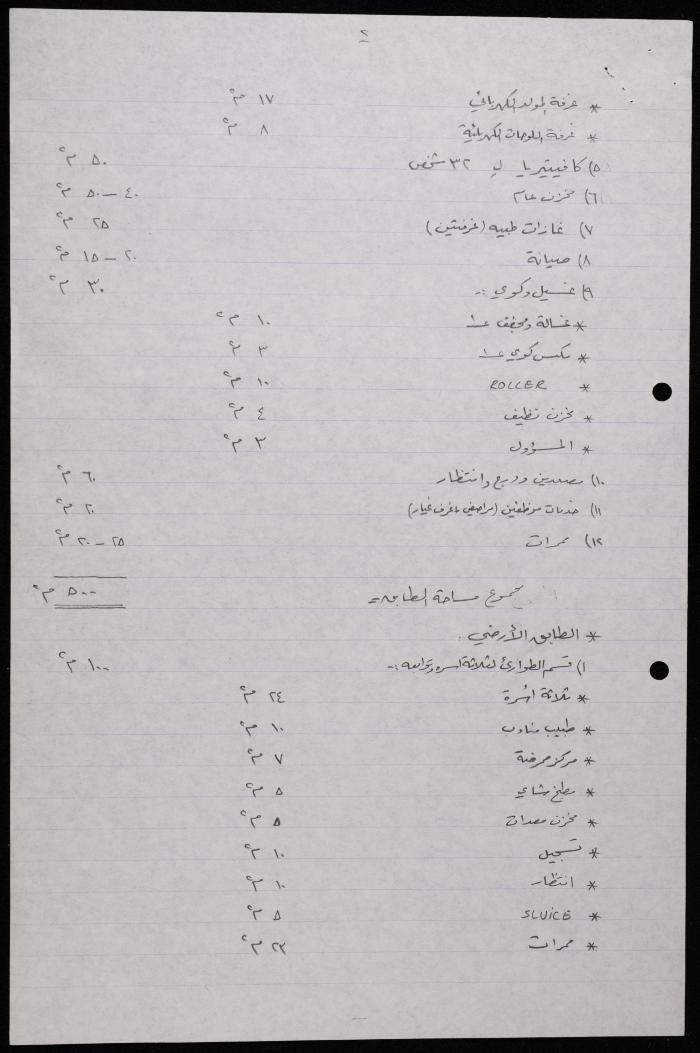 ٢
* غرفة المولد الكهربائي ١٧ م٢
* غرفة اللوحات الكهربائية ٨ م٢
٥) كافيتيريا لـ ٣٢ شخص ٥٠ م٢
٦) مخزن عام ٤٠ – ٥٠ م٢
٧) غازات طبيه (غرفتين) ٢٥ م٢
٨) صيانة ٢٠ – ١٥ م٢
٩) غسيل وكوي :- ٣٠ م٢
* غسالة ومجفف عدد ١ ١٠ م٢
* مكبس كوي عدد ١ ٣ م٢
* ROLLER ١٠ م٢
* مخزن نظيف ٤ م٢
* المسؤول ٣ م٢
١٠) مصعدين ودرج وانتظار ٦٠ م٢
١١) خدمات موظفين (مراحيض + غرف غيار) ٢٠ م٢
١٢) ممرات ٢٥ – ٢٠ م٢
مجموع مساحة الطابق = ٥٠٠ م٢
* الطابق الأرضي :
١) قسم الطوارئ لثلاثة اسره وتوابعه :- ١٠٠ م٢
* ثلاثة أسُرة ٢٤ م٢
* طبيب مناوب ١٠ م٢
* مركز ممرضة ٧ م٢
* مطبخ شاي ٥ م٢
* مخزن معدات ٥ م٢
* تسجيل ١٠ م٢
* انتظار ١٠ م٢
* SLUICE ٥ م٢
* ممرات ٢٣ م٢